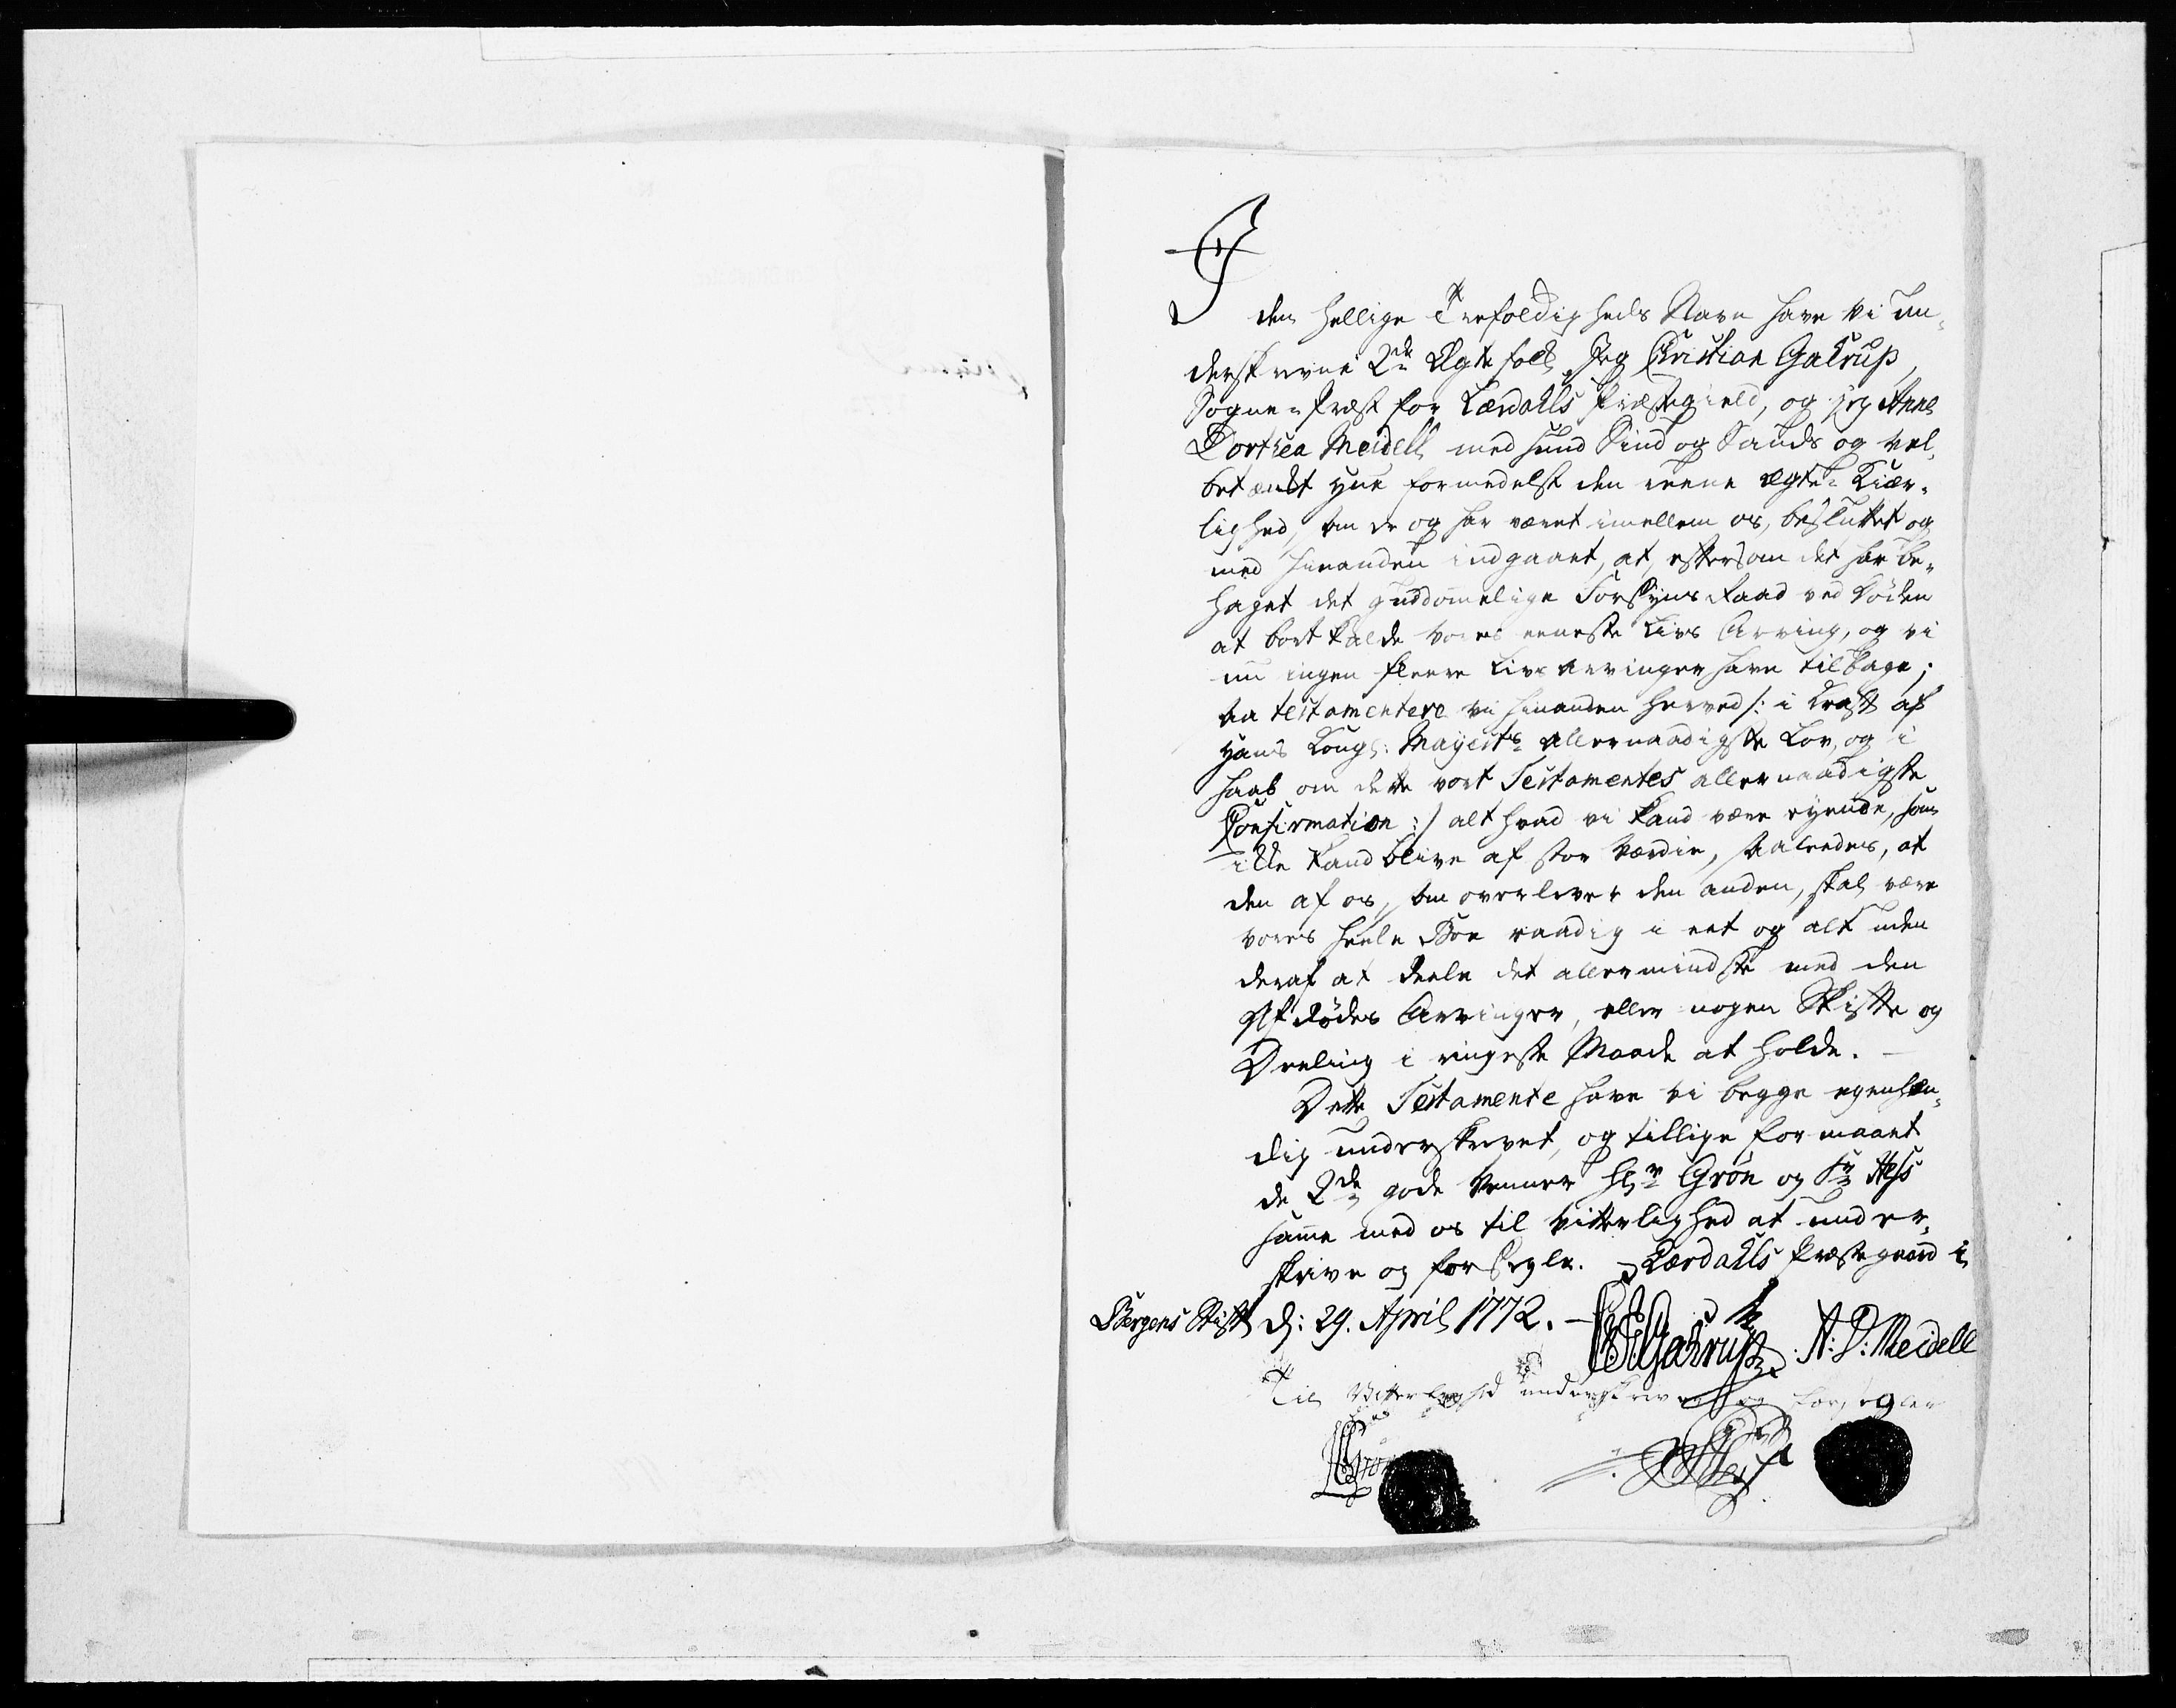 I
den hellige Treefoldigheds Navn have vi un-
derskrevne 2de Ægtefolk, Jeg Christian Gatrup,
Sogne-Præst for Lærdahls Præstegield, og jeg Anne
Dorthea Meidell med sund Sind og Sands og vel
betænkt Hue formedelst den reene ægte Kiær-
lighed, som er og har været imellem os, besluttet og
med hinanden indgaaet, at, eftersom det har be-
haget det guddommelige Forsyns Raad ved Døden
at bortkalde vores eeneste Livs Arving, og vi
nu ingen fleere Livs Arvinger have tilbage;
saa testamentere vi hinanden herved /: i Kraft af
Hans Kongl: Mayests allernaadigste Lov, og i
Haab om dette vort Testamentes allernaadigste
Confirmation :/ alt hvad vi kand være eyende, som
ikke kand blive af stor Værdie, saaledes, at
den af os, som overlever den anden, skal være
vores heele Boe raadig i eet og alt uden
deraf at deele det allermindste med den
Afdødes Arvinger, eller nogen Skifte og
Deeling i ringeste Maade at holde. —
Dette Testamente have vi begge egenhæn-
dig underskrevet, og tillige formaaet
de 2de gode Venner Hr Grøn og Sr Hess
samme med os til Vitterlighed at under-
skrive og forsegle. Lærdahls Præstegaard i
Bergens Stift d: 29. April 1772. —
Gatrup A: D: Meidell
Til Vitterlighed underskriver og forsegler
Grøn
Hess